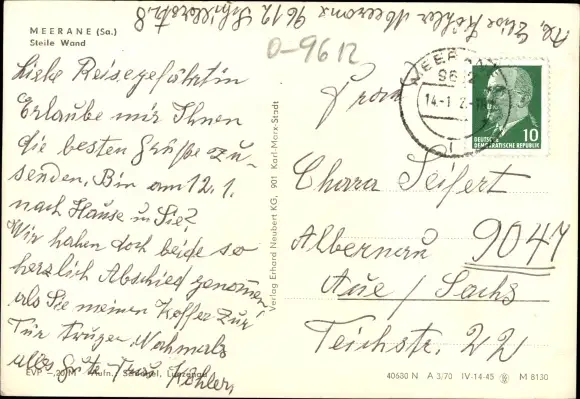 Ab. Elise Köhler Meerane 9612 Schillerstr. 8
MEERANE (Sa.)
Steile Wand
D-9612
Liebe Reisegefährtin
Erlaube mir Ihnen
die besten Grüße zu-
senden. Bin am 12.1.
nach Hause u Sie?
Wir haben doch beide so
herzlich Abschied genommen!
als Sie meinen Koffer zur
Tür trugen. Nochmals
alles Gute Frau Köhler,
EVP -,20 M
Verlag Erhard Neubert KG, 901 Karl-Marx-Stadt
MEERANE
9612
14-1
DEUTSCHE
DEMOKRATISCHE REPUBLIK
10
Frau
Chara Seifert
Albernau 9047
Aue / Sachs
Teichstr. 22
40630 N A 3/70 IV-14-45 M 8130